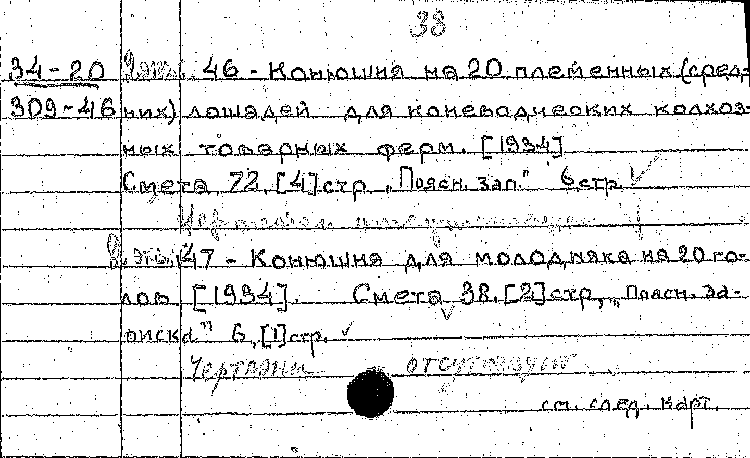 38
34-20 2 экз. 46 - Конюшня на 20 племенных (сред-
309-46 них) лошадей для коневадческих колхоз-
ных товарных ферм. [1934]
Смета 72, [4] стр. „Поясн. зап." 6 стр.
Чертежи отсутствуют
2 экз. 47 - Конюшня для молодняка на 20 го-
лов [1934]. Смета 38, [2] стр., „Поясн. за-
писка" 6, [1] стр.
Чертежи отсутствуют
см. след. карт.